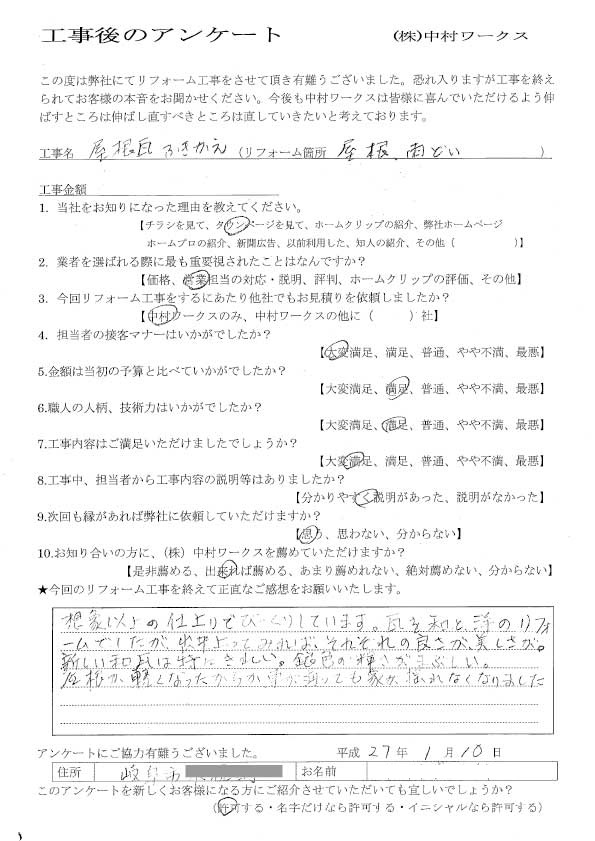 工事後のアンケート (株)中村ワークス
この度は弊社にてリフォーム工事をさせて頂き有難うございました。恐れ入りますが工事を終え
られてお客様の本音をお聞かせください。今後も中村ワークスは皆様に喜んでいただけるよう伸
ばすところは伸ばし直すべきところは直していきたいと考えております。
工事名 屋根瓦ふきかえ (リフォーム箇所 屋根、雨どい )
工事金額
1. 当社をお知りになった理由を教えてください。
【チラシを見て、タウンページを見て、ホームクリップの紹介、弊社ホームページ
ホームプロの紹介、新聞広告、以前利用した、知人の紹介、その他( )】
2. 業者を選ばれる際に最も重要視されたことはなんですか?
【価格、営業担当の対応・説明、評判、ホームクリップの評価、その他】
3. 今回リフォーム工事をするにあたり他社でもお見積りを依頼しましたか?
【中村ワークスのみ、中村ワークスの他に( )社】
4. 担当者の接客マナーはいかがでしたか?
【大変満足、満足、普通、やや不満、最悪】
5.金額は当初の予算と比べていかがでしたか?
【大変満足、満足、普通、やや不満、最悪】
6.職人の人柄、技術力はいかがでしたか?
【大変満足、満足、普通、やや不満、最悪】
7.工事内容はご満足いただけましたでしょうか?
【大変満足、満足、普通、やや不満、最悪】
8.工事中、担当者から工事内容の説明等はありましたか?
【分かりやすく説明があった、説明がなかった】
9.次回も縁があれば弊社に依頼していただけますか?
【思う、思わない、分からない】
10.お知り合いの方に、(株)中村ワークスを薦めていただけますか?
【是非薦める、出来れば薦める、あまり薦めれない、絶対薦めない、分からない】
★今回のリフォーム工事を終えて正直なご感想をお願いいたします。
想象以上の仕上りでびっくりしています。瓦を和と洋のリフォ
ームでしたが出来上ってみれば、それぞれの良さが、美しさが。
新しい和瓦は特にきれい。銀色の輝きがまぶしい。
屋根が軽くなったからか車が通っても家が揺れなくなりました
アンケートにご協力有難うございました。 平成 27 年 1 月 10 日
住所 岐阜市 お名前
このアンケートを新しくお客様になる方にご紹介させていただいても宜しいでしょうか?
(許可する・名字だけなら許可する・イニシャルなら許可する)